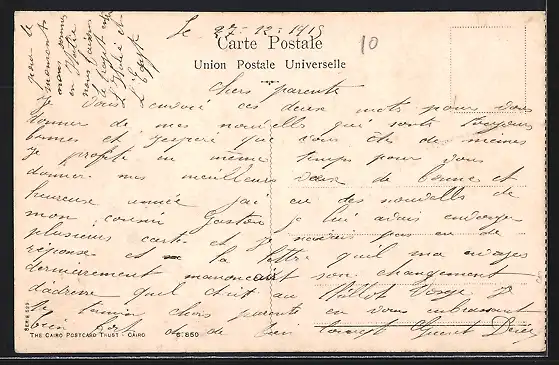 Le 27-12-1915
Carte Postale
10
Union Postale Universelle
pour le
moment
nous sommes
en
nous faisons
la
Italie et
L'Egypte
Chers parents
Je vous envoie ces deux mots pour vous
donner de mes nouvelles qui sont toujours
bonnes et j'espère que vous êtes de memes
Je profite en même temps pour vous
donner mes meilleurs vœux de bonne et
heureuse année j'ai eu des nouvelles de
mon cousin Gaston je lui avais envoyé
plusieurs cartes et je navais pas eu de
réponse et la lettre quil ma envoyé
dernièrement manoncait son changement
dadresse quil était au
Je termine chers parents en vous embrassant
bien fort
SERIE 509
THE CAIRO POSTCARD TRUST - CAIRO
6.850